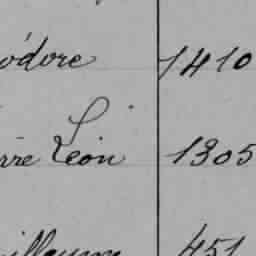 odore 1410
rre Léon 1305
illaume 451